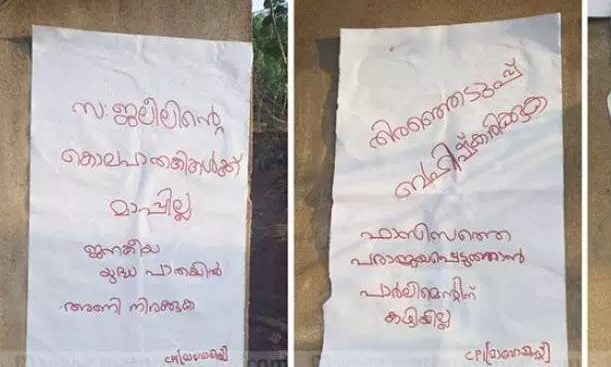 സ: ജലീലിന്റെ
കൊലപാതകികൾക്ക്
മാപ്പില്ല
ജനകീയ
യുദ്ധ പാതയിൽ
അണി നിരക്കുക
CPI(മാവോയിസ്റ്റ്)
തിരഞ്ഞെടുപ്പ്
ബഹിഷ്കരിക്കുക
ഫാസിസത്തെ
പരാജയപ്പെടുത്താൻ
പാർലിമെന്റിന്
കഴിയില്ല
CPI(മാവോയിസ്റ്റ്)